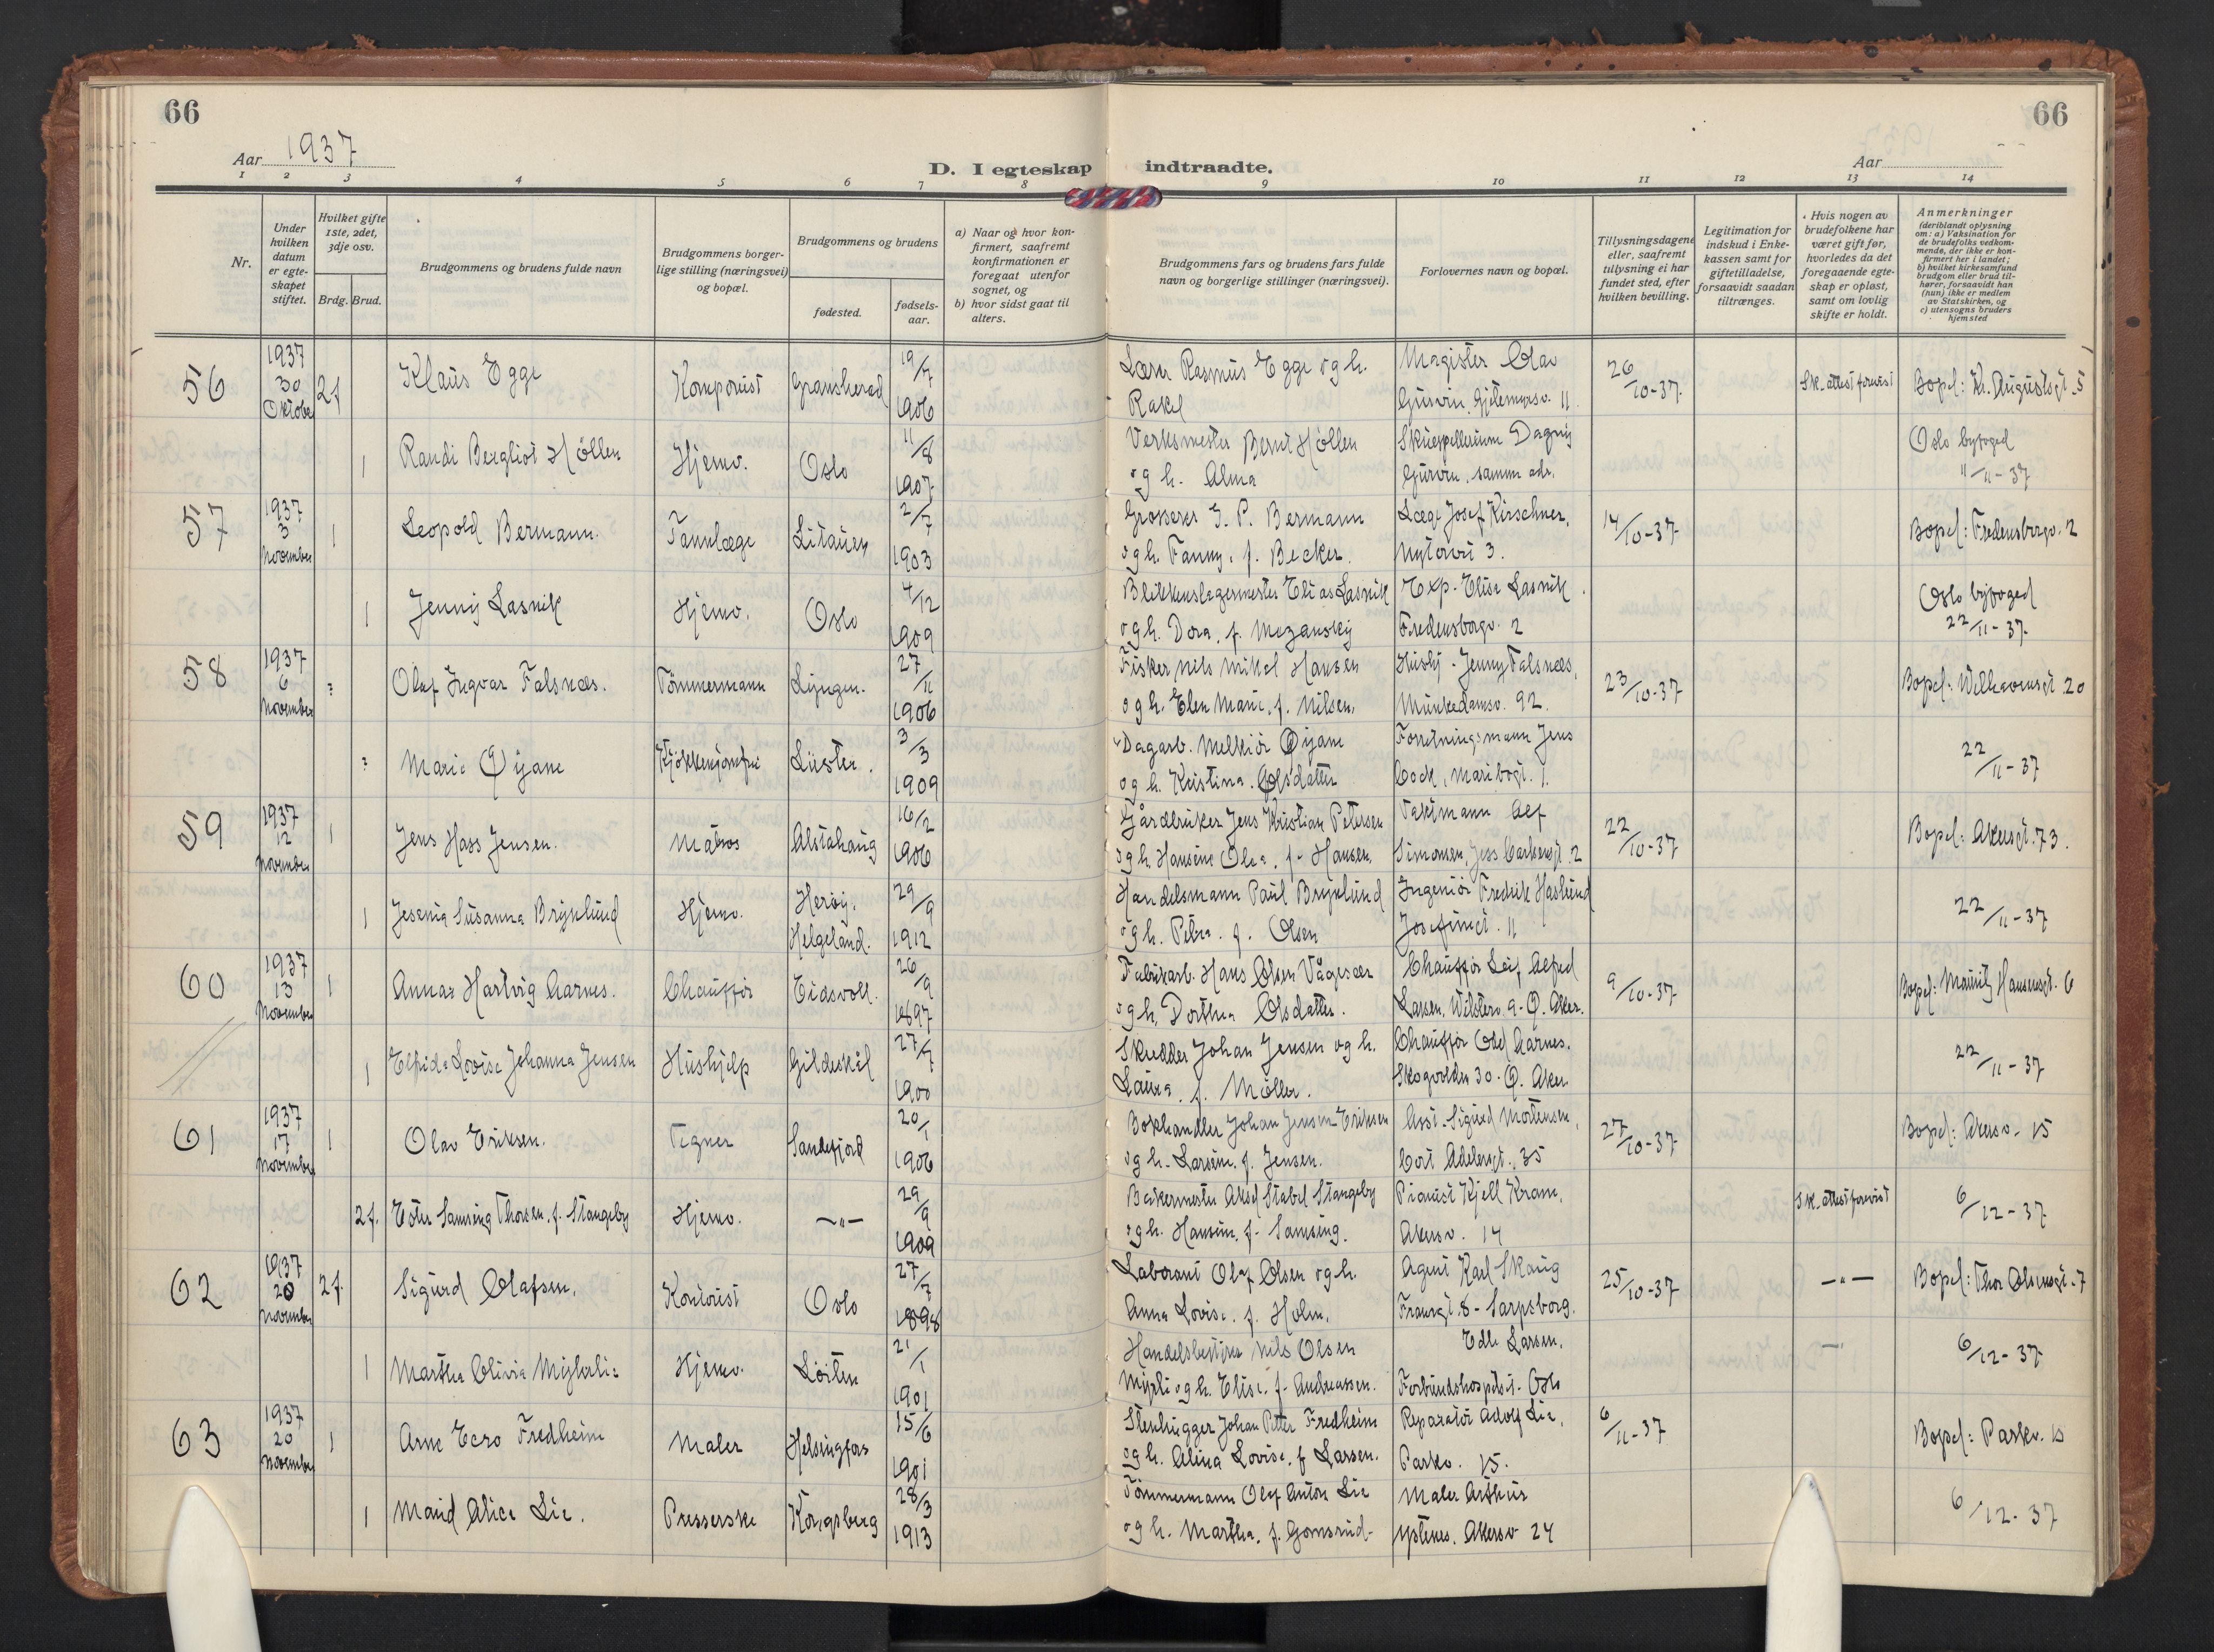 66
66
Aar 1937
D. I egteskap indtraadte.
Aar
1 2 3 4 5 6 7 8 9 10 11 12 13 14
Nr.
Under hvilken datum er egteskapet stiftet.
Hvilket gifte 1ste, 2det, 3dje osv.
Brdg. Brud.
Brudgommens og brudens fulde navn
Brudgommens borgerlige stilling (næringsvei) og bopæl.
Brudgommens og brudens
fødested.
fødselsaar.
a) Naar og hvor konfirmert, saafremt konfirmationen er foregaat utenfor sognet, og
b) hvor sidst gaat til alters.
Brudgommens fars og brudens fars fulde navn og borgerlige stillinger (næringsvei).
Forlovernes navn og bopæl.
Tillysningsdagene eller, saafremt tillysning ei har fundet sted, efter hvilken bevilling.
Legitimation for indskud i Enkekassen samt for giftetilladelse, forsaavidt saadan tiltrænges.
Hvis nogen av brudefolkene har været gift før, hvorledes da det foregaaende egteskap er opløst, samt om lovlig skifte er holdt.
Anmerkninger (deriblandt oplysning om: a) Vaksination for de brudefolks vedkommende, der ikke er konfirmert her i landet; b) hvilket kirkesamfund brudgom eller brud tilhører, forsaavidt han (hun) ikke er medlem av Statskirken, og c) utensogns bruders hjemsted
56 1937 30 Oktober 2f Klaus Egge Komponist Gransherad 19/7 1906 Lærer Rasmus Egge og h. Rakel Magister Olav Gurvin, Gjetemyrsv. 11 26/10-37 Sk.attest forevist Bopel: Kr. Augustsgt. 5
1 Randi Bergliot Höllen Hjemv. Oslo 11/8 1907 Verksmester Bernt Höllen og h. Alma Skuespellerinne Dagny Gurvin, samme adr. Oslo byfoged 11/11-37
57 1937 3 November 1 Leopold Bermann. Tannlæge Litauen 2/7 1903 Grosserer I. P. Bermann og h. Fanny, f. Becker. Læge Josef Kirschner, Nytorvet 3. 14/10-37 Bopel: Fredensborgv. 2
1 Jenny Lasnik Hjemv. Oslo 4/12 1909 Blikkenslagermester Elias Lasnik og h. Dora, f. Mozansky Exp. Elise Lasnik. Fredensborgv. 2 Oslo byfoged 22/11-37.
58 1937 6 November ? Olaf Ingvar Falsnæs. Tömmermann Lyngen. 27/11 1906 Fisker Nils Mikal Hansen og h. Elen Marie, f. Nilsen, Hushj. Jenny Falsnæs, Munkedamsv. 92. 23/10-37 Bopel: Welhavensgt 20
? Marie Öyane Kjökkenjomfru Luster. 3/3 1909 Dagarb. Melkiör Öyane og h. Kristina Olsdatter Forretningsmann Jens Cock, Maribogt. 1. 22/11-37
59 1937 12 November 1 Jens Hass Jensen. Matros Alstahaug 16/2 1906 Gårdbruker Jens Kristian Petersen og h. Hansine Olea, f. Hansen. Taktmann Alf Simonsen, Jess Carlsensgt. 2 22/10-37 Bopel: Akersgt. 73.
1 Jesenia Susanna Bryklund Hjemv. Heröy, Helgeland. 29/9 1912 Handelsmann Paul Bryklund og h. Petra f. Olsen Ingeniör Fredrik Haslund Josefinegt. 11 22/11-37
60 1937 13 November 1 Annar Hartvig Aarnes. Chaufför Eidsvoll. 26/9 1897 Fabrikarb. Hans Olsen Vågesær og h. Dorthea Olsdatter. Chaufför Leif Alfred Larsen, Wilsterv. 9. Ö. Aker. 9/10-37 Bopel: Mauritz Hansensgt. 6
1 Elfrida Lovise Johanna Jensen Hushjelp Gildeskål 27/7 1900 Skredder Johan Jensen og h. Laura f. Möller. Chauffør Odd Aarnes. Skogvollen 30. Ö. Aker 22/11-37
61 1937 17 November 1 Olav Eriksen. Tegner Sandefjord 20/1 1906 Bokhandler Johan Jensen Eriksen og h. Larsine f. Jensen. Assi. Sigurd Mortensen, Cort Adelersgt. 35 27/10-37 Bopel: Akersv. 15
2f. Ester Samsing Thorsen, f. Stangeby Hjemv. —"— 29/9 1909 Bakermester Aksel Stabel Stangeby og h. Hansine f. Samsing. Pianist Kjell Kram, Akersv. 14 Sk.attest forevist 6/12-37
62 1937 20 November 2f. Sigurd Olafsen. Kontorist Oslo 27/7 1898 Laborant Olaf Olsen og h. Anna Lovise f. Holm. Agent Karl Skaug Fransgt. 8 - Sarpsborg. 25/10-37 —"— Bopel: Thor Olsensgt. 7
1 Martha Olivia Myhrlie Hjemv. Löiten 21/1 1901 Handelsbestyrer Nils Olsen Myrli og h. Elise, f. Andreassen. Edle Larsen. Forbundshospitset. Oslo —"— 6/12-37
63 1937 20 November 1 Arne Eero Fredheim Maler Helsingfors 15/6 1901 Stenhugger Johan Petter Fredheim og h. Alina Lovise, f Larsen. Reparatör Adolf Lie, Parkv. 15. 6/11-37 Bopel: Parkv. 15
1 Maud Alice Lie. Presserske Kongsberg 28/3 1913 Tömmermann Olaf Anton Lie og h. Martha, f. Gomsrud. Maler Arthur Ystenes. Akersv 24 6/12-37